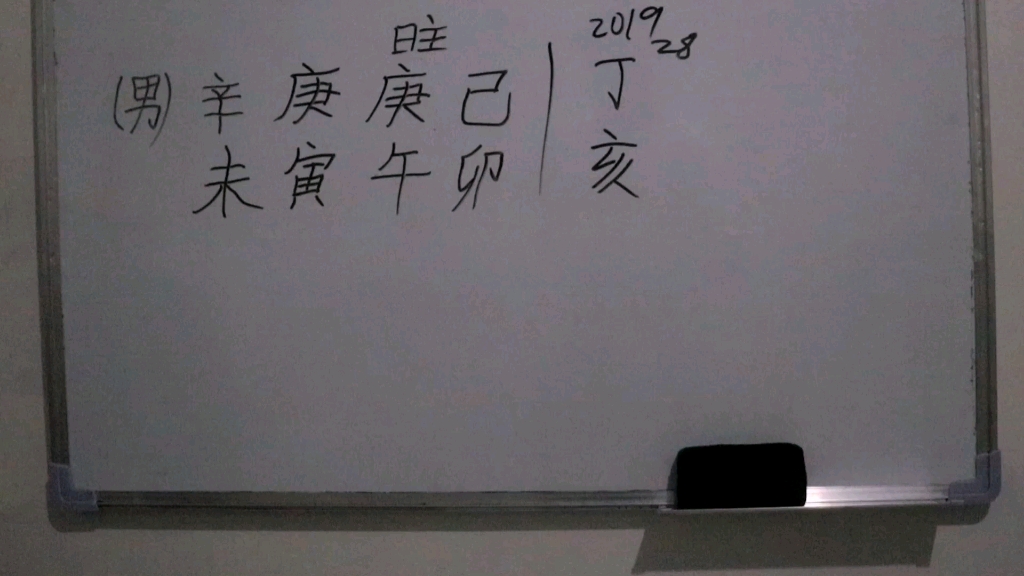 日主 2019 28
(男) 辛 庚 庚 己 丁
未 寅 午 卯 亥